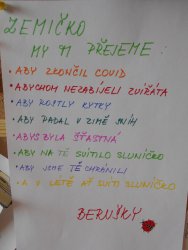 ZEMIČKO
MY TI PŘEJEME:
• ABY ZKONČIL COVID
• ABYCHOM NEZABÍJELI ZVÍŘATA
• ABY ROSTLY KYTKY
• ABY PADAL V ZIMĚ SNÍH
• ABYS BYLA ŠŤASTNÁ
• ABY NA TĚ SVÍTILO SLUNÍČKO
• ABY JSME TĚ CHRÁNILI
• A V LÉTĚ AŤ SVÍTÍ SLUNÍČKO
BERUŠKY